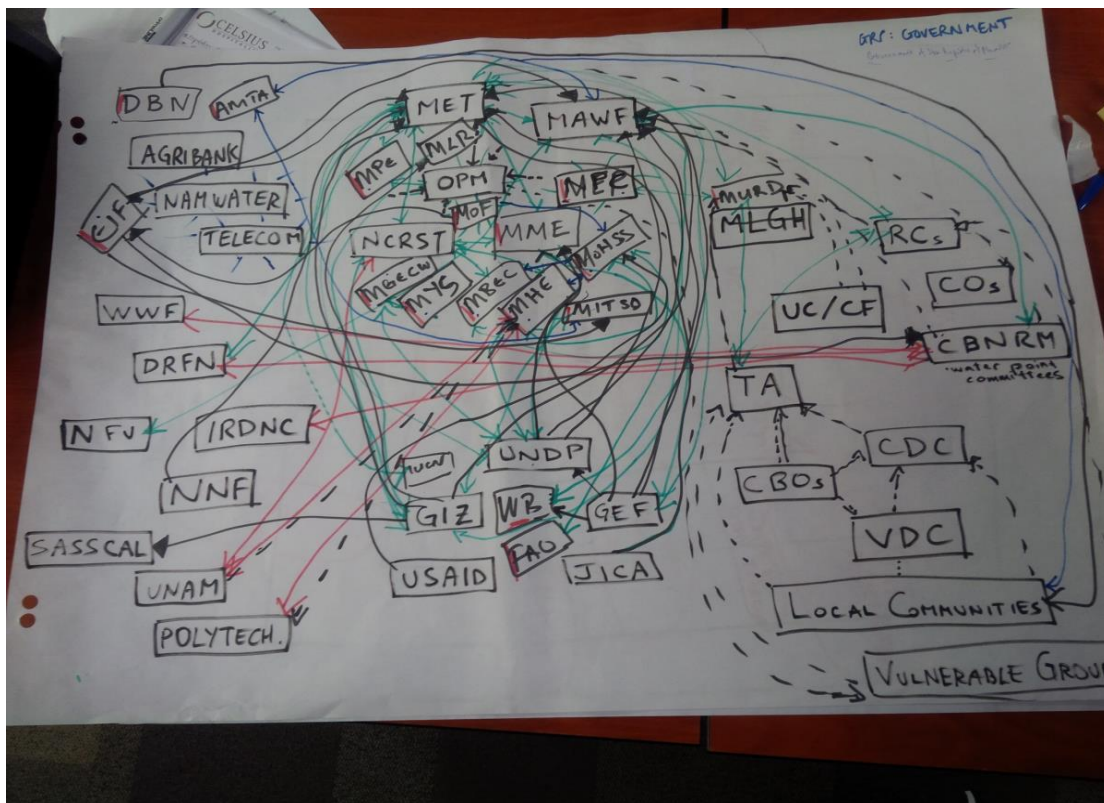 CELSIUS
GRP: GOVERNMENT
DBN
AMTA
MET
MAWF
AGRIBANK
MPe
MLR
OPM
NAMWATER
MoF
MME
MURD
MLGH
RCs
CIF
TELECOM
NCRST
MoHSS
COs
MBECW
MYS
MBEC
MHE
MITSD
UC/CF
WWF
CBNRM
water point
committees
DRFN
TA
NFU
IRDNC
UNDP
CDC
IUCN
CBOs
NNF
GIZ
WB
GEF
VDC
SASSCAL
FAO
USAID
JICA
UNAM
LOCAL COMMUNITIES
POLYTECH.
VULNERABLE GROU